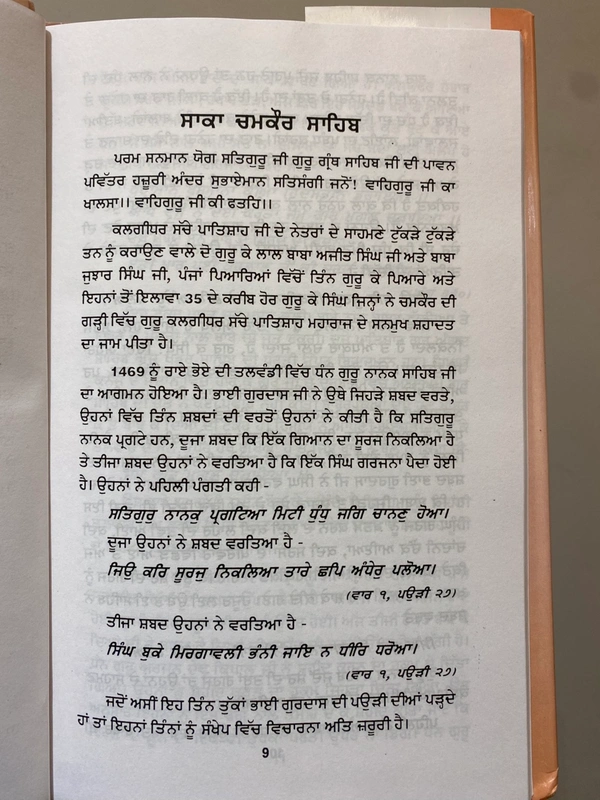 ਸਾਕਾ ਚਮਕੌਰ ਸਾਹਿਬ
ਪਰਮ ਸਨਮਾਨ ਯੋਗ ਸਤਿਗੁਰੂ ਜੀ ਗੁਰੂ ਗ੍ਰੰਥ ਸਾਹਿਬ ਜੀ ਦੀ ਪਾਵਨ
ਪਵਿੱਤਰ ਹਜ਼ੂਰੀ ਅੰਦਰ ਸੁਭਾਏਮਾਨ ਸਤਿਸੰਗੀ ਜਨੋਂ! ਵਾਹਿਗੁਰੂ ਜੀ ਕਾ
ਖਾਲਸਾ।। ਵਾਹਿਗੁਰੂ ਜੀ ਕੀ ਫਤਹਿ।।
ਕਲਗੀਧਰ ਸੱਚੇ ਪਾਤਿਸ਼ਾਹ ਜੀ ਦੇ ਨੇਤਰਾਂ ਦੇ ਸਾਹਮਣੇ ਟੁੱਕੜੇ ਟੁੱਕੜੇ
ਤਨ ਨੂੰ ਕਰਾਉਣ ਵਾਲੇ ਦੋ ਗੁਰੂ ਕੇ ਲਾਲ ਬਾਬਾ ਅਜੀਤ ਸਿੰਘ ਜੀ ਅਤੇ ਬਾਬਾ
ਜੁਝਾਰ ਸਿੰਘ ਜੀ, ਪੰਜਾਂ ਪਿਆਰਿਆਂ ਵਿੱਚੋਂ ਤਿੰਨ ਗੁਰੂ ਕੇ ਪਿਆਰੇ ਅਤੇ
ਇਹਨਾਂ ਤੋਂ ਇਲਾਵਾ 35 ਦੇ ਕਰੀਬ ਹੋਰ ਗੁਰੂ ਕੇ ਸਿੰਘ ਜਿਨ੍ਹਾਂ ਨੇ ਚਮਕੌਰ ਦੀ
ਗੜ੍ਹੀ ਵਿੱਚ ਗੁਰੂ ਕਲਗੀਧਰ ਸੱਚੇ ਪਾਤਿਸ਼ਾਹ ਮਹਾਰਾਜ ਦੇ ਸਨਮੁਖ ਸ਼ਹਾਦਤ
ਦਾ ਜਾਮ ਪੀਤਾ ਹੈ।
1469 ਨੂੰ ਰਾਏ ਭੋਏ ਦੀ ਤਲਵੰਡੀ ਵਿੱਚ ਧੰਨ ਗੁਰੂ ਨਾਨਕ ਸਾਹਿਬ ਜੀ
ਦਾ ਆਗਮਨ ਹੋਇਆ ਹੈ। ਭਾਈ ਗੁਰਦਾਸ ਜੀ ਨੇ ਉਥੇ ਜਿਹੜੇ ਸ਼ਬਦ ਵਰਤੇ,
ਉਹਨਾਂ ਵਿੱਚ ਤਿੰਨ ਸ਼ਬਦਾਂ ਦੀ ਵਰਤੋਂ ਉਹਨਾਂ ਨੇ ਕੀਤੀ ਹੈ ਕਿ ਸਤਿਗੁਰੂ
ਨਾਨਕ ਪ੍ਰਗਟੇ ਹਨ, ਦੂਜਾ ਸ਼ਬਦ ਕਿ ਇੱਕ ਗਿਆਨ ਦਾ ਸੂਰਜ ਨਿਕਲਿਆ ਹੈ
ਤੇ ਤੀਜਾ ਸ਼ਬਦ ਉਹਨਾਂ ਨੇ ਵਰਤਿਆ ਹੈ ਕਿ ਇੱਕ ਸਿੰਘ ਗਰਜਨਾ ਪੈਦਾ ਹੋਈ
ਹੈ। ਉਹਨਾਂ ਨੇ ਪਹਿਲੀ ਪੰਗਤੀ ਕਹੀ -
ਸਤਿਗੁਰੁ ਨਾਨਕੁ ਪ੍ਰਗਟਿਆ ਮਿਟੀ ਧੁੰਧੁ ਜਗਿ ਚਾਨਣੁ ਹੋਆ।
ਦੂਜਾ ਉਹਨਾਂ ਨੇ ਸ਼ਬਦ ਵਰਤਿਆ ਹੈ -
ਜਿਉ ਕਰਿ ਸੂਰਜੁ ਨਿਕਲਿਆ ਤਾਰੇ ਛਪਿ ਅੰਧੇਰੁ ਪਲੋਆ।
(ਵਾਰ ੧, ਪਉੜੀ ੨੭)
ਤੀਜਾ ਸ਼ਬਦ ਉਹਨਾਂ ਨੇ ਵਰਤਿਆ ਹੈ -
ਸਿੰਘ ਬੁਕੇ ਮਿਰਗਾਵਲੀ ਭੰਨੀ ਜਾਇ ਨ ਧੀਰਿ ਧਰੋਆ।
(ਵਾਰ ੧, ਪਉੜੀ ੨੭)
ਜਦੋਂ ਅਸੀਂ ਇਹ ਤਿੰਨ ਤੁੱਕਾਂ ਭਾਈ ਗੁਰਦਾਸ ਦੀ ਪਉੜੀ ਦੀਆਂ ਪੜ੍ਹਦੇ
ਹਾਂ ਤਾਂ ਇਹਨਾਂ ਤਿੰਨਾਂ ਨੂੰ ਸੰਖੇਪ ਵਿੱਚ ਵਿਚਾਰਨਾ ਅਤਿ ਜ਼ਰੂਰੀ ਹੈ।
9